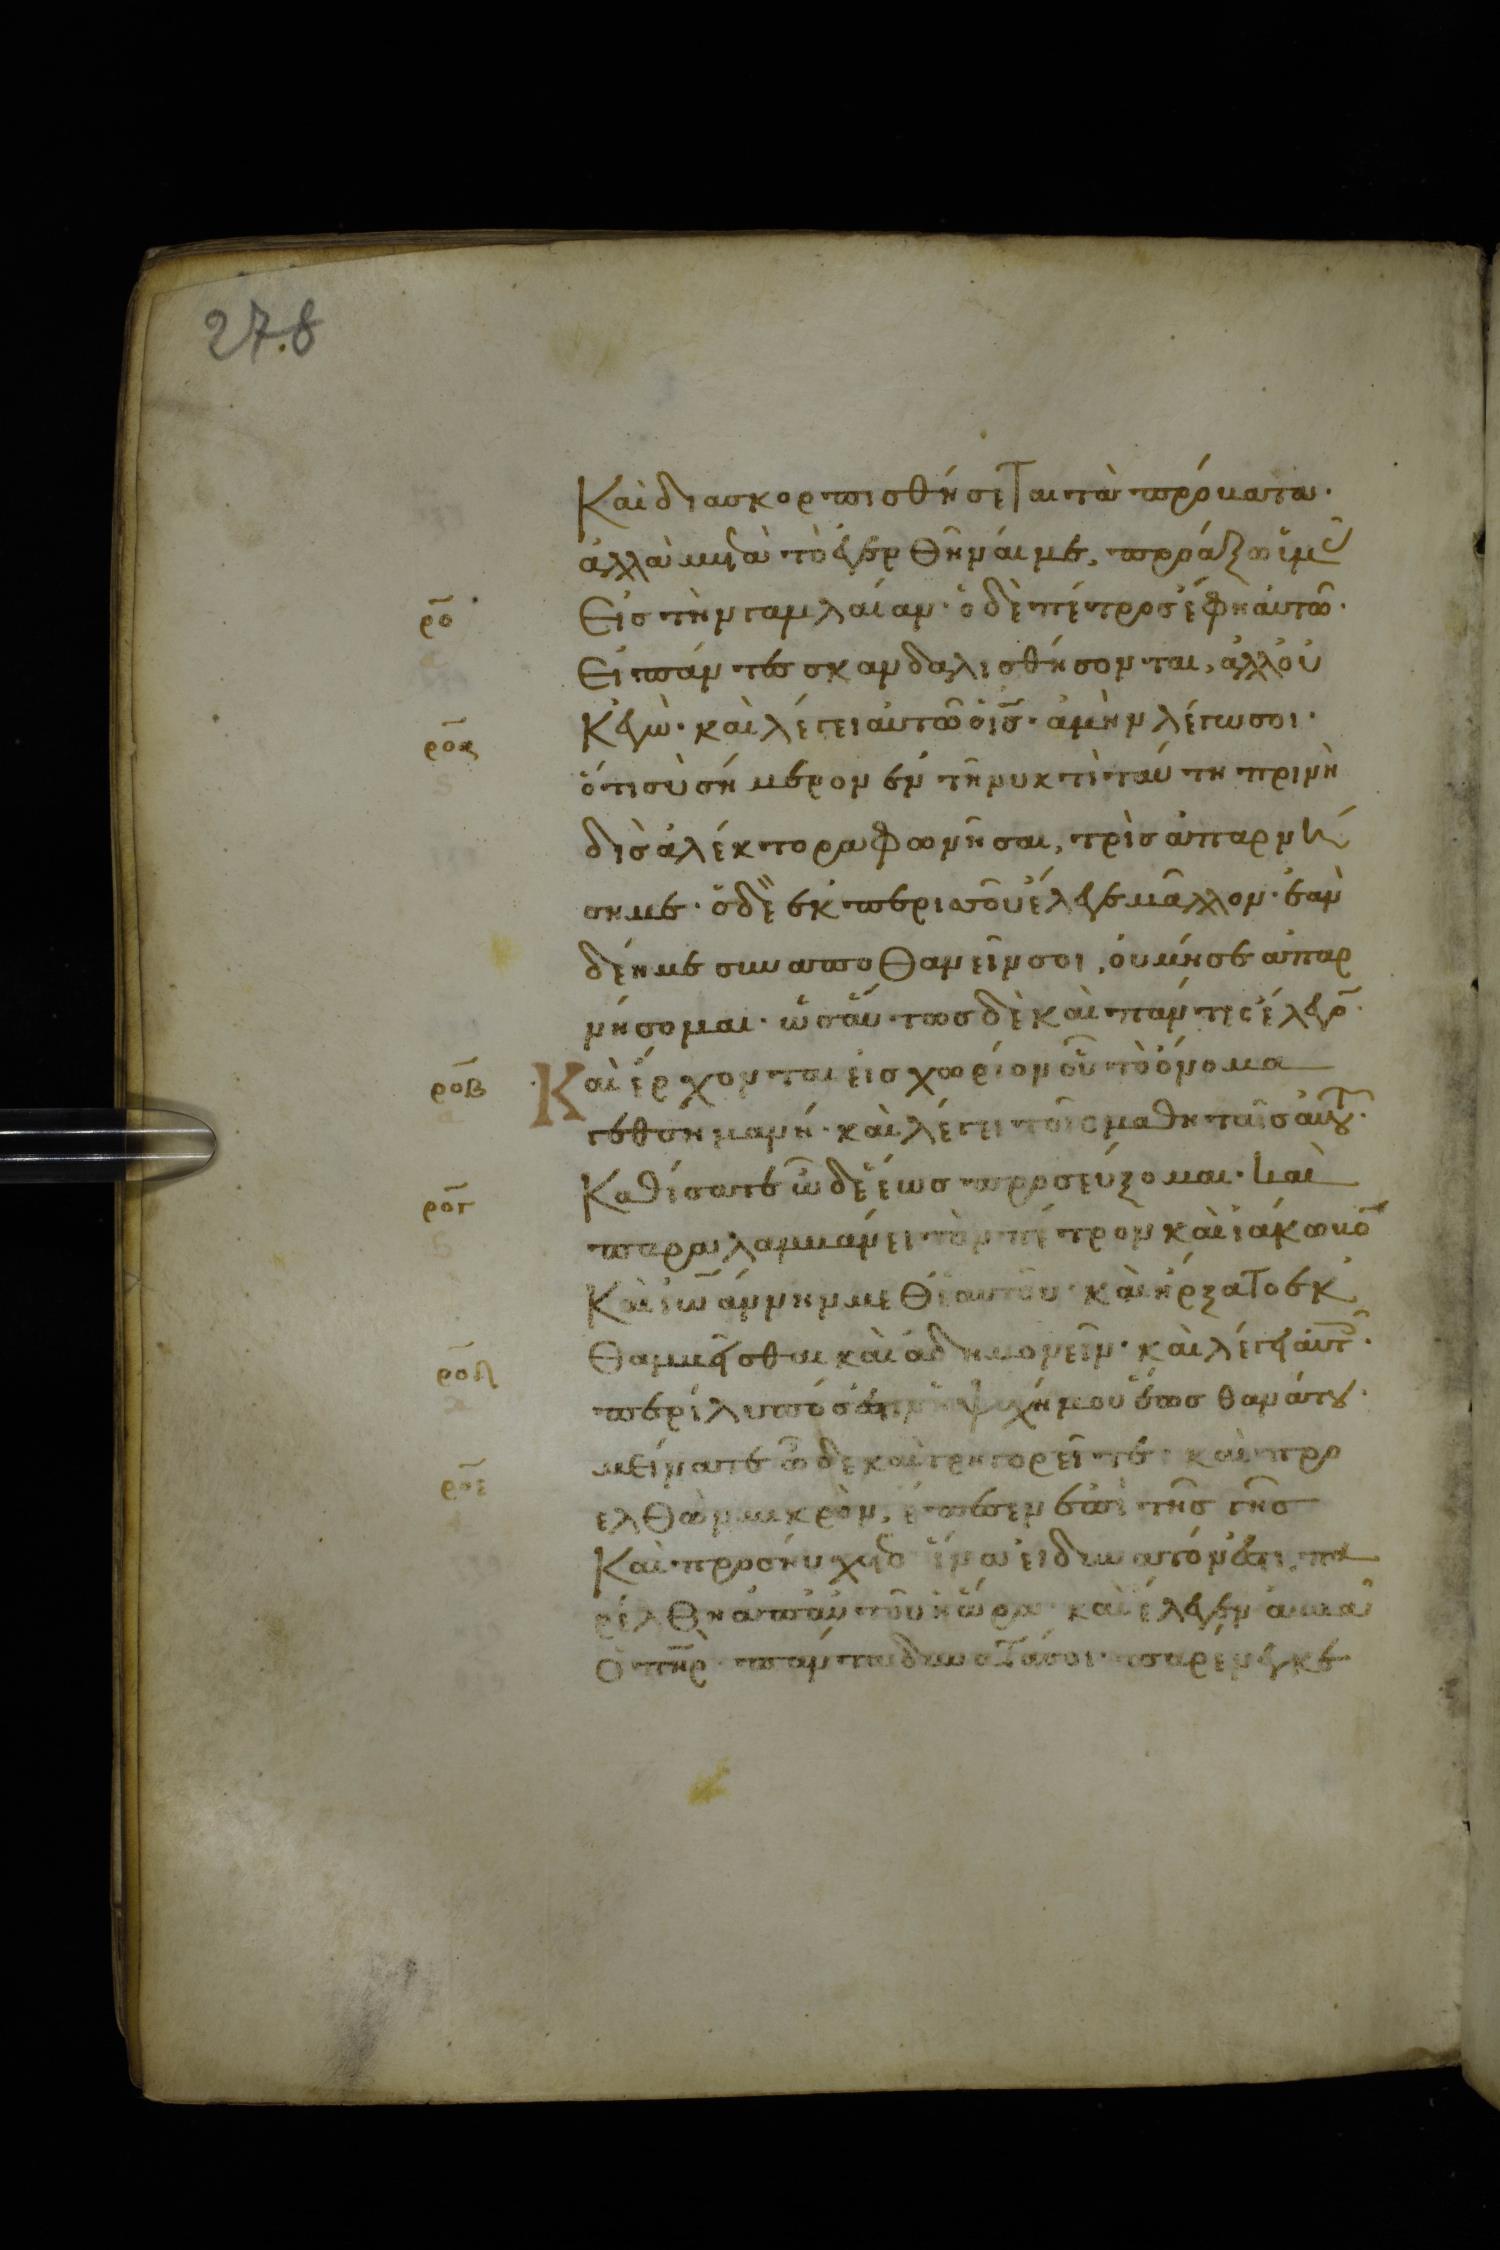 278
Καὶ διασκορπισθήσεται τὰ πρόβατα·
ἀλλὰ μετὰ τὸ ἐγερθῆναί με, προάξω ὑμᾶς
ρο Εἰς τὴν γαλιλαίαν· ὁ δὲ πέτρος ἔφη αὐτῶ·
Εἰ πάντες σκανδαλισθήσονται, ἀλλ' οὐ
ροα Κἀγὼ· καὶ λέγει αὐτῶ ὁ ις· ἀμὴν λέγω σοι·
ὅτι σὺ σήμερον ἐν τῆ νυκτὶ ταύτη πρινὴ
δὶς ἀλέκτορα φωνῆσαι, τρὶς ἀπαρνή
ση με· ὁ δὲ ἐκ περισσοῦ ἔλεγε μᾶλλον· ἐὰν
δέη με συναποθανεῖν σοι, οὐ μή σε ἀπαρ
νήσομαι· ὡσαύτως δὲ καὶ πάντες ἔλεγον·
ροβ Καὶ ἔρχονται εἰς χωρίον οὗ τὸ ὄνομα
γεθσημανή· καὶ λέγει τοῖς μαθηταῖς αὐτοῦ·
ρογ Καθίσατε ὧδε ἕως προσεύξομαι· καὶ
παραλαμβάνει τὸν πέτρον καὶ ἰάκωβον
Καὶ ἰωάννην μεθ' ἑαυτοῦ· καὶ ἤρξατο ἐκ
ροδ Θαμβεῖσθαι καὶ ἀδημονεῖν· καὶ λέγει αὐτοῖς·
περίλυπός ἐστιν ἡ ψυχή μου ἕως θανάτου·
ροε μείνατε ὧδε καὶ γρηγορεῖτε· καὶ προ
ελθὼν μικρὸν, ἔπεσεν ἐπὶ τῆς γῆς
Καὶ προσηύχετο ἵνα εἰ δυνατόν ἐστι, πα
ρέλθη ἀπ' αὐτοῦ ἡ ὥρα· καὶ ἔλεγεν ἀββᾶ
Ο πηρ· πάντα δυνατά σοι· παρένεγκε